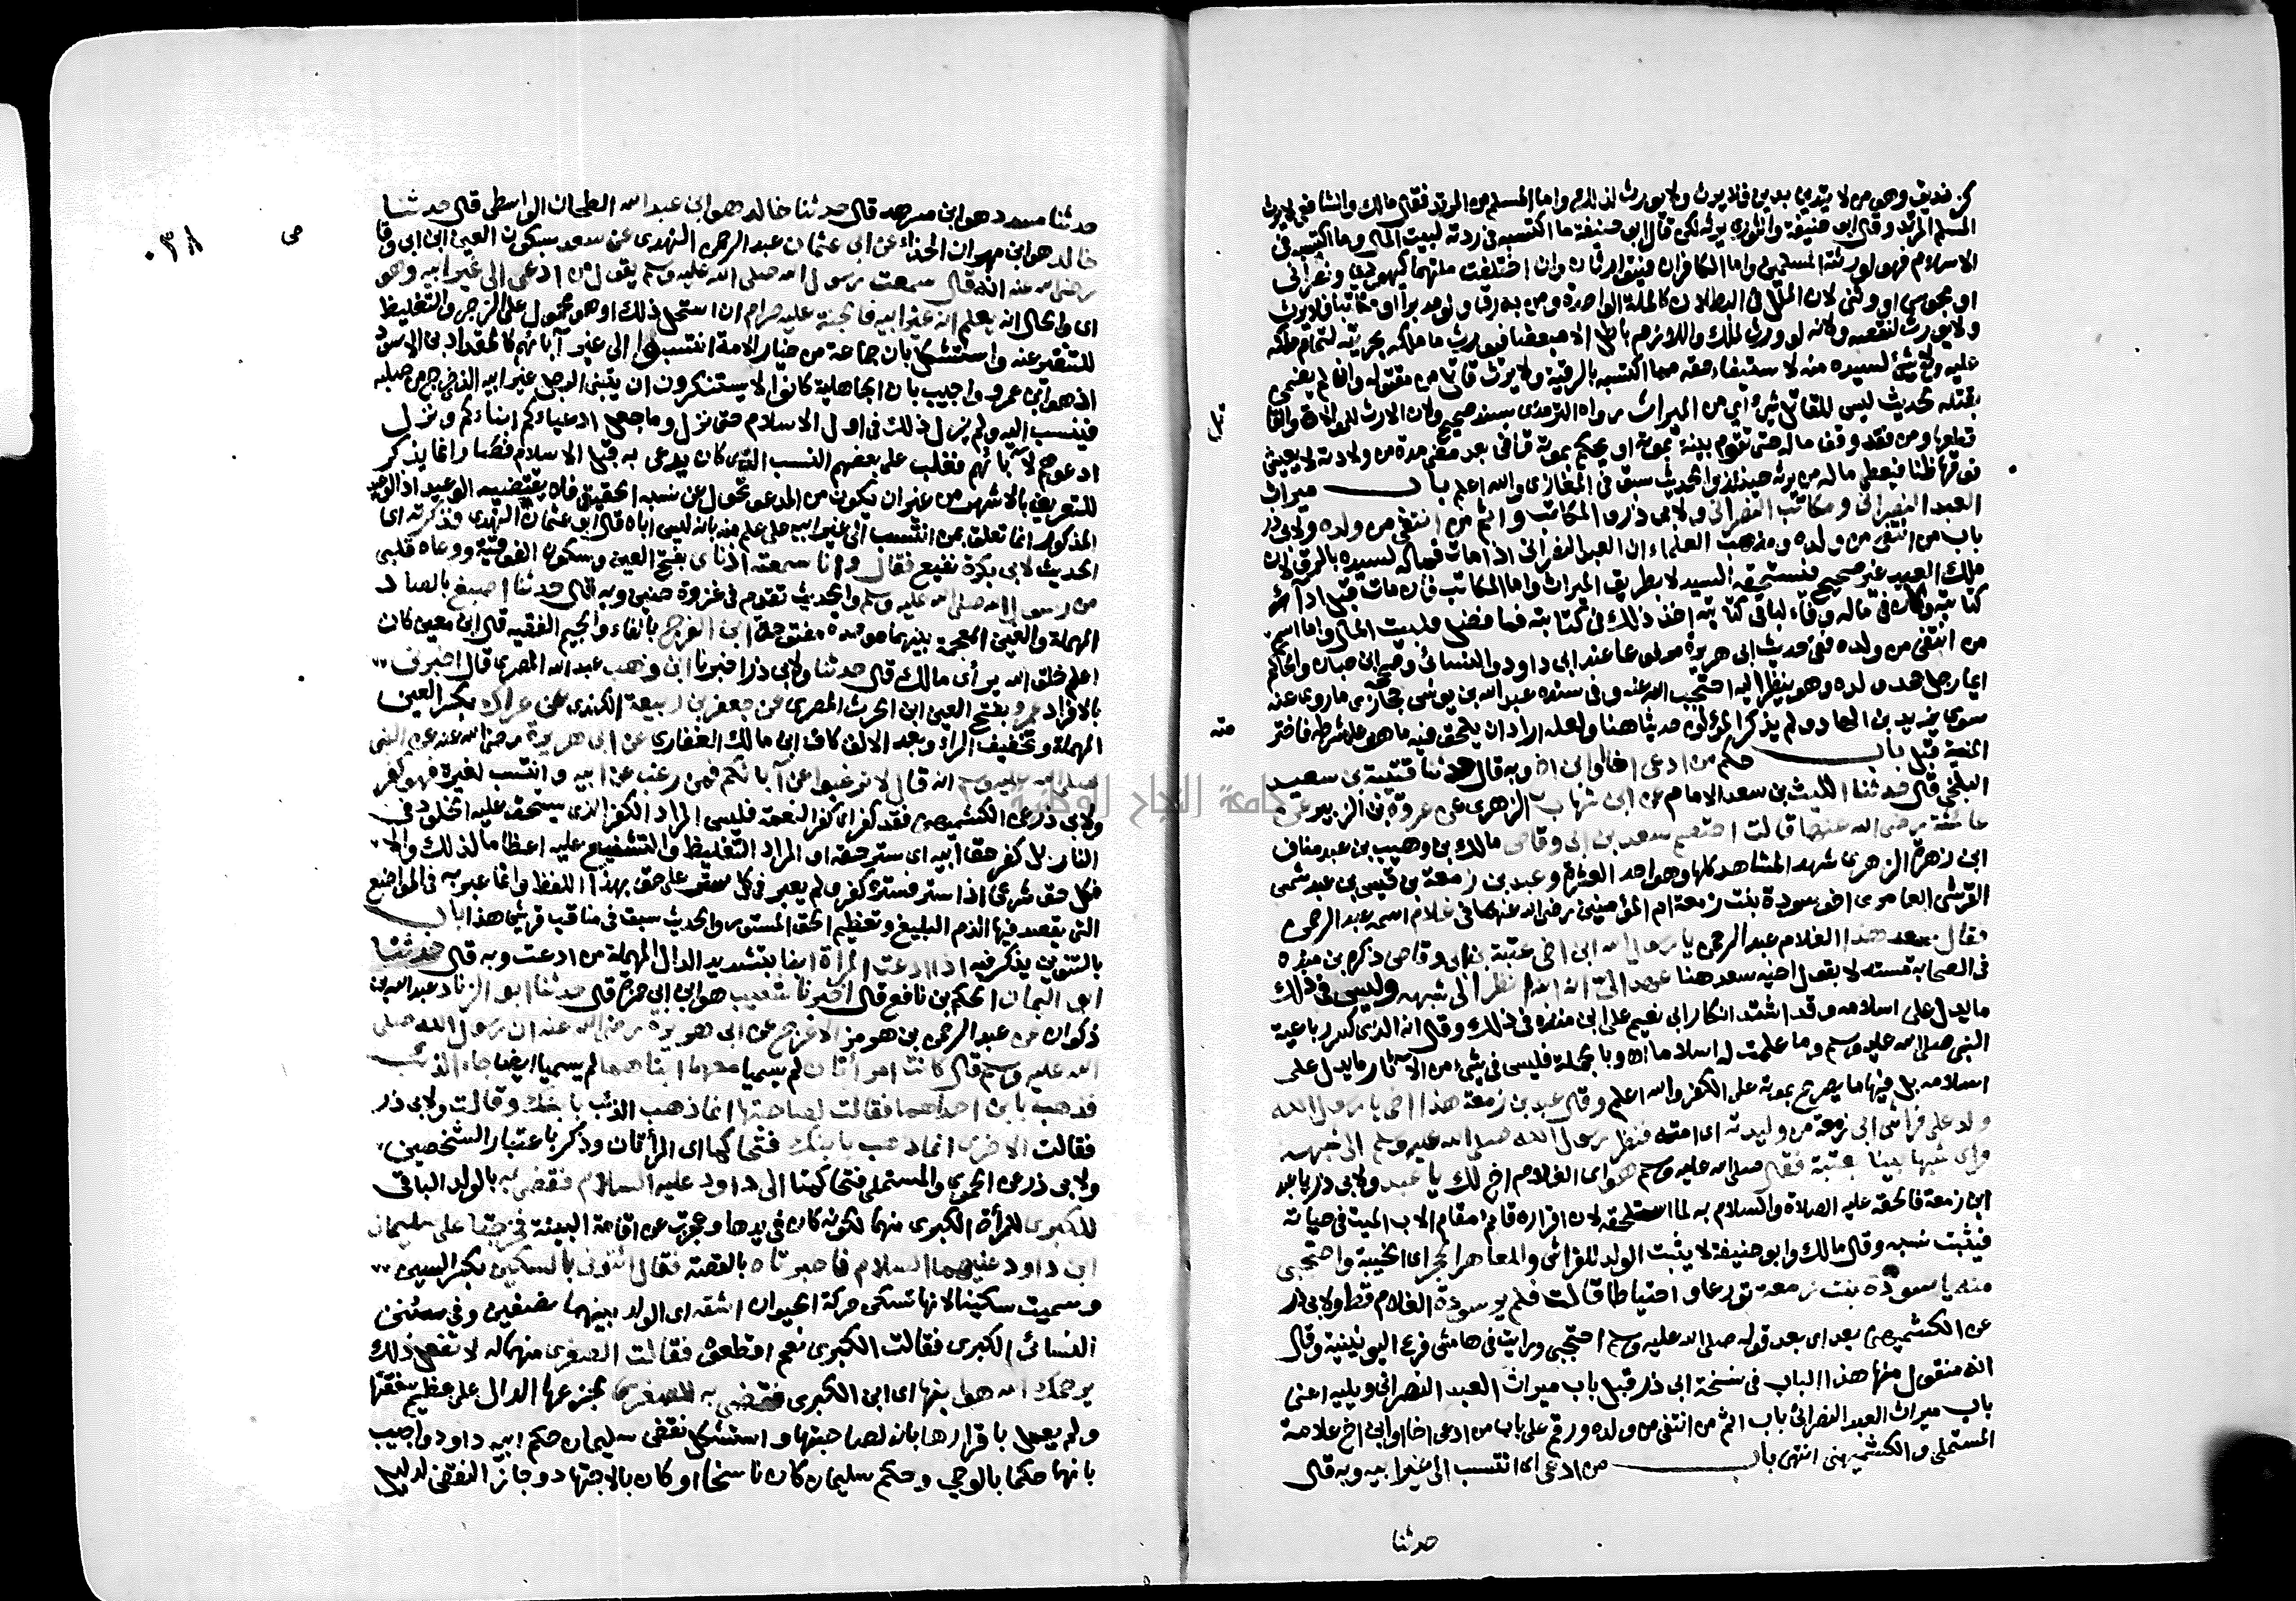 كزنديق وهو من لا يتدين بدين فلا يرث ولا يورث لذلك واما المسلم من المرتد فقال مالك والشافعي لا يرث
المسلم المرتد وقال ابو حنيفة والثوري يرثه لكن قال ابو حنيفة ما اكتسبه في ردته لبيت المال وما اكتسبه في
الاسلام فهو لورثته المسلمين واما الكافران فيتوارثان وان اختلفت ملتهما كيهودي ونصراني
او مجوسي او وثني لان الملل في البطلان كالملة الواحدة ومن به رق ولو مدبرا او مكاتبا فلا يرث
ولا يورث لنقصه ولانه لو ورث لملك واللازم باطل الا مبعضا فيورث ما ملكه بحريته لتمام ملكه
عليه ولا شيء لسيده منه لاستيفاء حقه مما اكتسبه بالرقية ولا يرث قاتل من مقتوله وان لم يضمن
بقتله لحديث ليس للقاتل شيء اي من الميراث رواه الترمذي بسند صحيح ولان الارث للموالاة والقاتل
قطعها ومن فقد وقف ماله حتى تقوم بينة بموته او يحكم بموته قاض بعد مضي مدة من ولادته لا يعيش
فوقها ظنا فيعطى ماله من يرثه حينئذ والحديث سبق في المغازي والله اعلم باب ميراث
العبد النصراني ومكاتب النصراني ولابي ذر والمكاتب واثم من انتفى من ولده ولابي ذر
باب من انتفى من ولده ومذهب العلماء ان العبد النصراني اذا مات فماله لسيده بالرق لان
ملك العبيد غير صحيح فيستحقه السيد لا بطريق الميراث واما المكاتب فان مات قبل اداء
كتابته وكان في ماله وفاء لباقي كتابته اخذ ذلك في كتابته فما فضل فلبيت المال واما اسم
من انتفى من ولده ففي حديث ابي هريرة مرفوعا عند ابي داود والنسائي وصححه ابن حبان والحاكم
ايما رجل جحد ولده وهو ينظر اليه احتجب الله عنه وفي سنده عبد الله بن يونس حجازي ما روى عنه
سوى يزيد بن الهاد ولم يذكر المؤلف حديثا هنا ولعله اراد ان يلحق فيه ما هو على شرطه فاخترمته
المنية قبل باب حكم من ادعى اخا او ابن اخ وبه قال حدثنا قتيبة بن سعيد
البلخي قال حدثنا الليث بن سعد الامام عن ابن شهاب الزهري عن عروة بن الزبير عن
عائشة رضي الله عنها قالت اختصم سعد بن ابي وقاص مالك بن وهيب بن عبد مناف
ابن زهرة الزهري شهد المشاهد كلها وهو احد العشرة وعبد بن زمعة بن قيس بن عبد شمس
القرشي العامري اخو سودة بنت زمعة ام المؤمنين رضي الله عنهما في غلام اسمه عبد الرحمن
فقال سعد هذا الغلام عبد الرحمن يا رسول الله ابن اخي عتبة بن ابي وقاص ذكره بن منده
في الصحابة مستدلا بقول اخيه سعد هنا عهد الي انه ابنه انظر الى شبهه وليس في ذلك
ما يدل على اسلامه وقد اشتد انكار ابي نعيم على ابن منده في ذلك وقال انه الذي كسر رباعية
النبي صلى الله عليه وسلم وما علمت له اسلاما اه وبالجملة فليس في شيء من الآثار ما يدل على
اسلامه بل فيها ما يصرح بموته على الكفر والله اعلم وقال عبد بن زمعة هذا اخي يا رسول الله
ولد على فراش ابي زمعة من وليدته اي امته فنظر رسول الله صلى الله عليه وسلم الى شبهه
فراى شبها بينا بعتبة فقال صلى الله عليه وسلم هو اي الغلام اخ لك يا عبد ولابي ذر يا عبد
ابن زمعة فالحقه عليه الصلاة والسلام به لما استلحقه لان اقراره قائم مقام الاب الميت في حياته
فيثبت نسبه وقال مالك وابو حنيفة لا يثبت الولد للفراش وللعاهر الحجر اي الخيبة واحتجبي
منه يا سودة بنت زمعة تورعا واحتياطا قالت فلم ير سودة الغلام قط ولابي ذر
عن الكشميهني بعد اي بعد قوله صلى الله عليه وسلم احتجبي ورايت في هامش فرع اليونينية وقال
انه منقول منها هذا الباب في نسخة ابي ذر قبل باب ميراث العبد النصراني ويليه اعني
باب ميراث العبد النصراني باب اثم من انتفى من ولده ورقم على باب من ادعى اخا او ابن اخ علامة
المستملي والكشميهني انتهى باب من ادعى اي انتسب الى غير ابيه وبه قال
حدثنا
حدثنا مسدد هو ابن مسرهد قال حدثنا خالد هو ابن عبد الله الطحان الواسطي قال حدثنا
خالد هو ابن مهران الحذاء عن ابي عثمان عبد الرحمن النهدي عن سعد بسكون العين ابن ابي وقاص
رضي الله عنه انه قال سمعت رسول الله صلى الله عليه وسلم يقول من ادعى الى غير ابيه وهو
اي والحال انه يعلم انه غير ابيه فالجنة عليه حرام ان استحل ذلك او هو محمول على الزجر والتغليظ
للتنفير عنه واستشكل بان جماعة من خيار الامة انتسبوا الى غير آبائهم كالمقداد بن الاسود
اذ هو ابن عمرو واجيب بان الجاهلية كانوا لا يستنكرون ان يتبنى الرجل غير ابيه الذي خرج من صلبه
فينسب اليه ولم يزل ذلك في اول الاسلام حتى نزل وما جعل ادعياءكم ابناءكم ونزل
ادعوهم لآبائهم فغلب على بعضهم النسب الذي كان يدعى به قبل الاسلام فصار انما يذكر
للتعريف بالاشهر من غير ان يكون من المدعو تحول عن نسبه الحقيقي فلا يقتضيه الوعيد اذ الوعيد
المذكور انما تعلق بمن انتسب الى غير ابيه على علم منه بانه ليس اباه قال ابو عثمان النهدي فذكرته اي
الحديث لابي بكرة نفيع فقال وانا سمعته اذناي بفتح العين وسكون الفوقية ووعاه قلبي
من رسول الله صلى الله عليه وسلم والحديث تقدم في غزوة حنين وبه قال حدثنا اصبغ بالصاد
المهملة والغين المعجمة بينهما موحدة مفتوحة ابن الفرج بالفاء والجيم الفقيه قال ابن معين كان
اعلم خلق الله برأي مالك قال حدثنا ولابي ذر اخبرنا ابن وهب عبد الله المصري قال اخبرني
بالافراد عمرو بفتح العين ابن الحرث المصري عن جعفر بن ربيعة الكندي عن عراك بكسر العين
المهملة وتخفيف الراء وبعد الالف كاف ابن مالك الغفاري عن ابي هريرة رضي الله عنه عن النبي
صلى الله عليه وسلم انه قال لا ترغبوا عن آبائكم فمن رغب عن ابيه وانتسب لغيره فهو كفر
ولابي ذر عن الكشميهني فقد كفر اي كفر النعمة فليس المراد الكفر الذي يستحق عليه الخلود في
النار بل كفر حق ابيه اي ستر حقه او المراد التغليظ والتشنيع عليه اعظاما لذلك والا
فكل حق شرعي اذا ستر فستره كفر ولم يعبر في كل ستر على حق بهذا اللفظ وانما عبر به في المواضع
التي يقصد فيها الذم البليغ وتعظيم الحق المستور والحديث سبق في مناقب قريش هذا باب
بالتنوين يذكر فيه اذا ادعت المراة ابنا بتشديد الدال المهملة من ادعت وبه قال حدثنا
ابو اليمان الحكم بن نافع قال اخبرنا شعيب هو ابن ابي حمزة قال حدثنا ابو الزناد عبد الله بن
ذكوان عن عبد الرحمن بن هرمز الاعرج عن ابي هريرة رضي الله عنه ان رسول الله صلى
الله عليه وسلم قال كانت امرأتان لم يسميا معهما ابناهما لم يسميا ايضا جاء الذئب
فذهب بابن احداهما فقالت لصاحبتها انما ذهب الذئب بابنك وقالت ولابي ذر
فقالت الاخرى انما ذهب بابنك فتحاكما اي المرأتان وذكر باعتبار الشخصين
ولابي ذر عن الحموي والمستملي فتحاكمتا الى داود عليه السلام فقضى به بالولد الباقي
للكبرى للمرأة الكبرى منهما لكونه كان في يدها وعجزت عن اقامة البينة فخرجتا على سليمان
ابن داود عليهما السلام فاخبرتاه بالقصة فقال ائتوني بالسكين بكسر السين
وسميت سكينا لانها تسكن حركة الحيوان اشقه اي الولد بينهما نصفين وفي سنن
النسائي الكبرى فقالت الكبرى نعم اقطعوه فقالت الصغرى منهما له لا تفعل ذلك
يرحمك الله هو ابنها اي ابن الكبرى فقضى به للصغرى لجزعها الدال على عظيم شفقتها
ولم يعمل باقرارها بانه لصاحبتها واستشكل نقض سليمان حكم ابيه داود واجيب
بانهما حكما بالوحي وحكم سليمان كان ناسخا او كان بالاجتهاد وجاز النقض لدليل
جامعة النجاح الوطنية